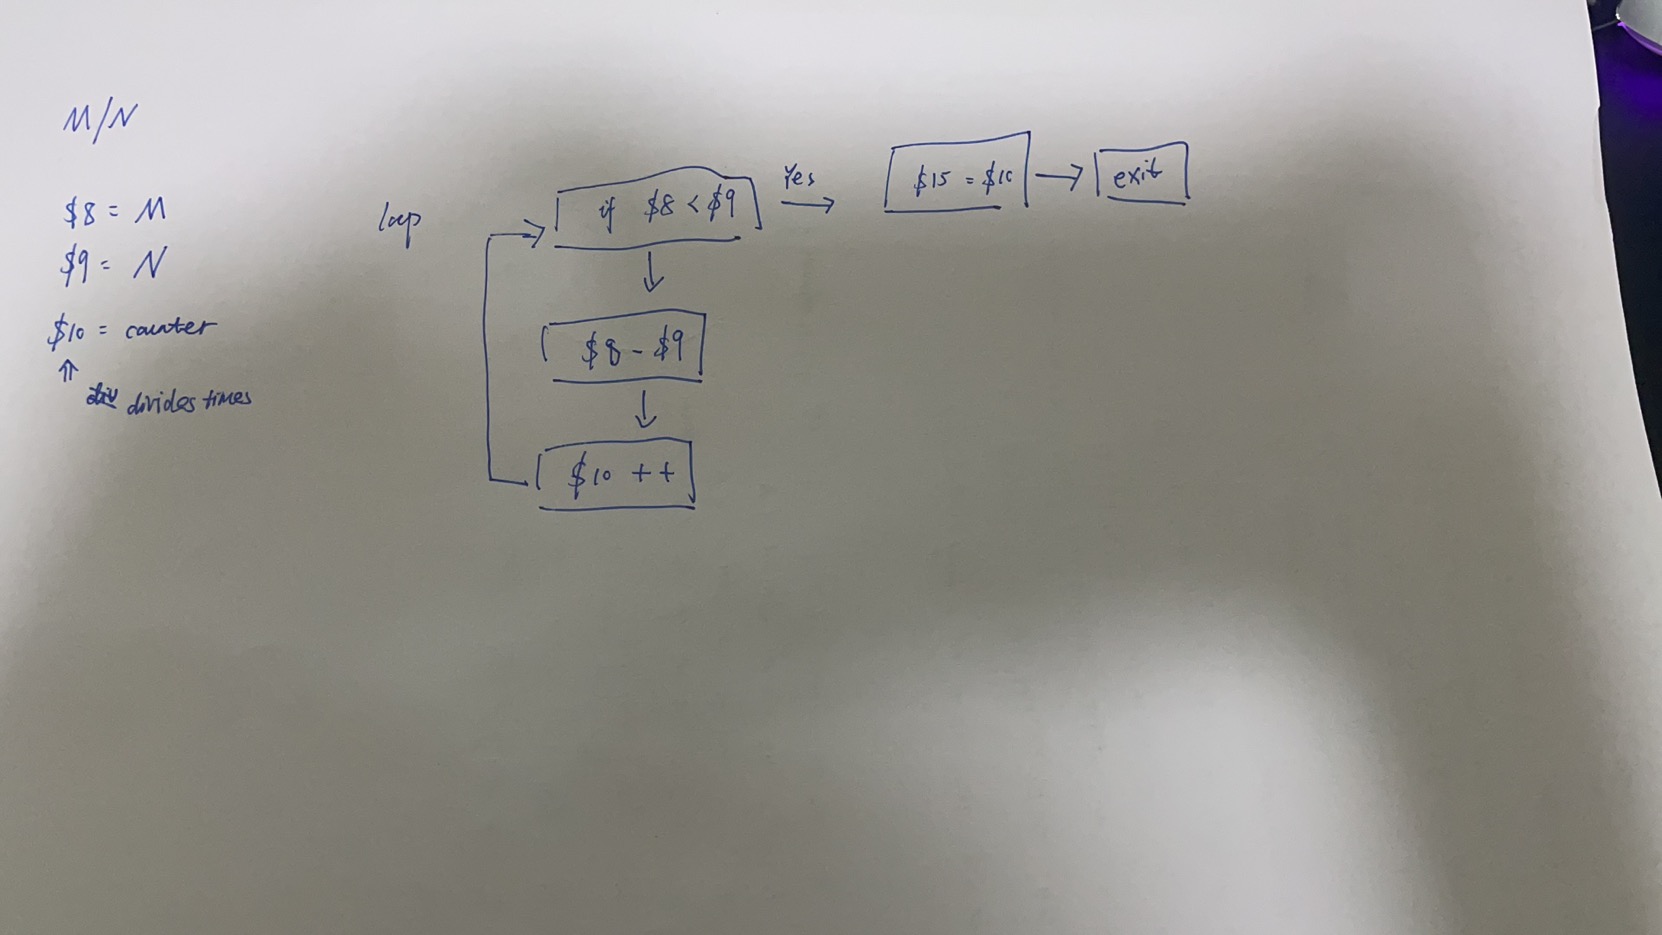 M/N
$8 = M
$9 = N
$10 = counter
divides times
loop
if $8 < $9
Yes
$15 = $10
exit
$8 - $9
$10 ++